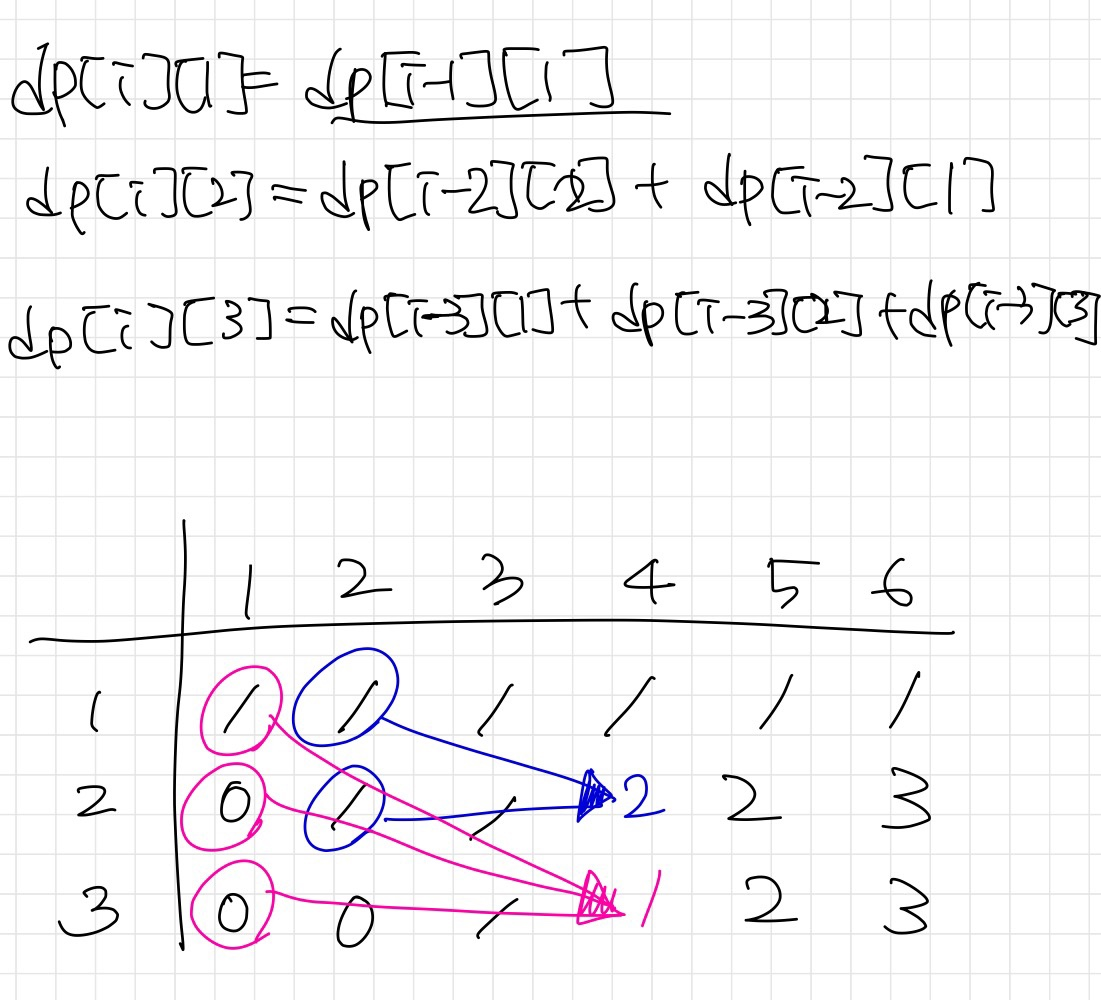 dp[i][1] = dp[i-1][1]
dp[i][2] = dp[i-2][2] + dp[i-2][1]
dp[i][3] = dp[i-3][1] + dp[i-3][2] + dp[i-3][3]
1 2 3 4 5 6
1 1 1 1 1 1 1
2 0 1 1 2 2 3
3 0 0 1 1 2 3